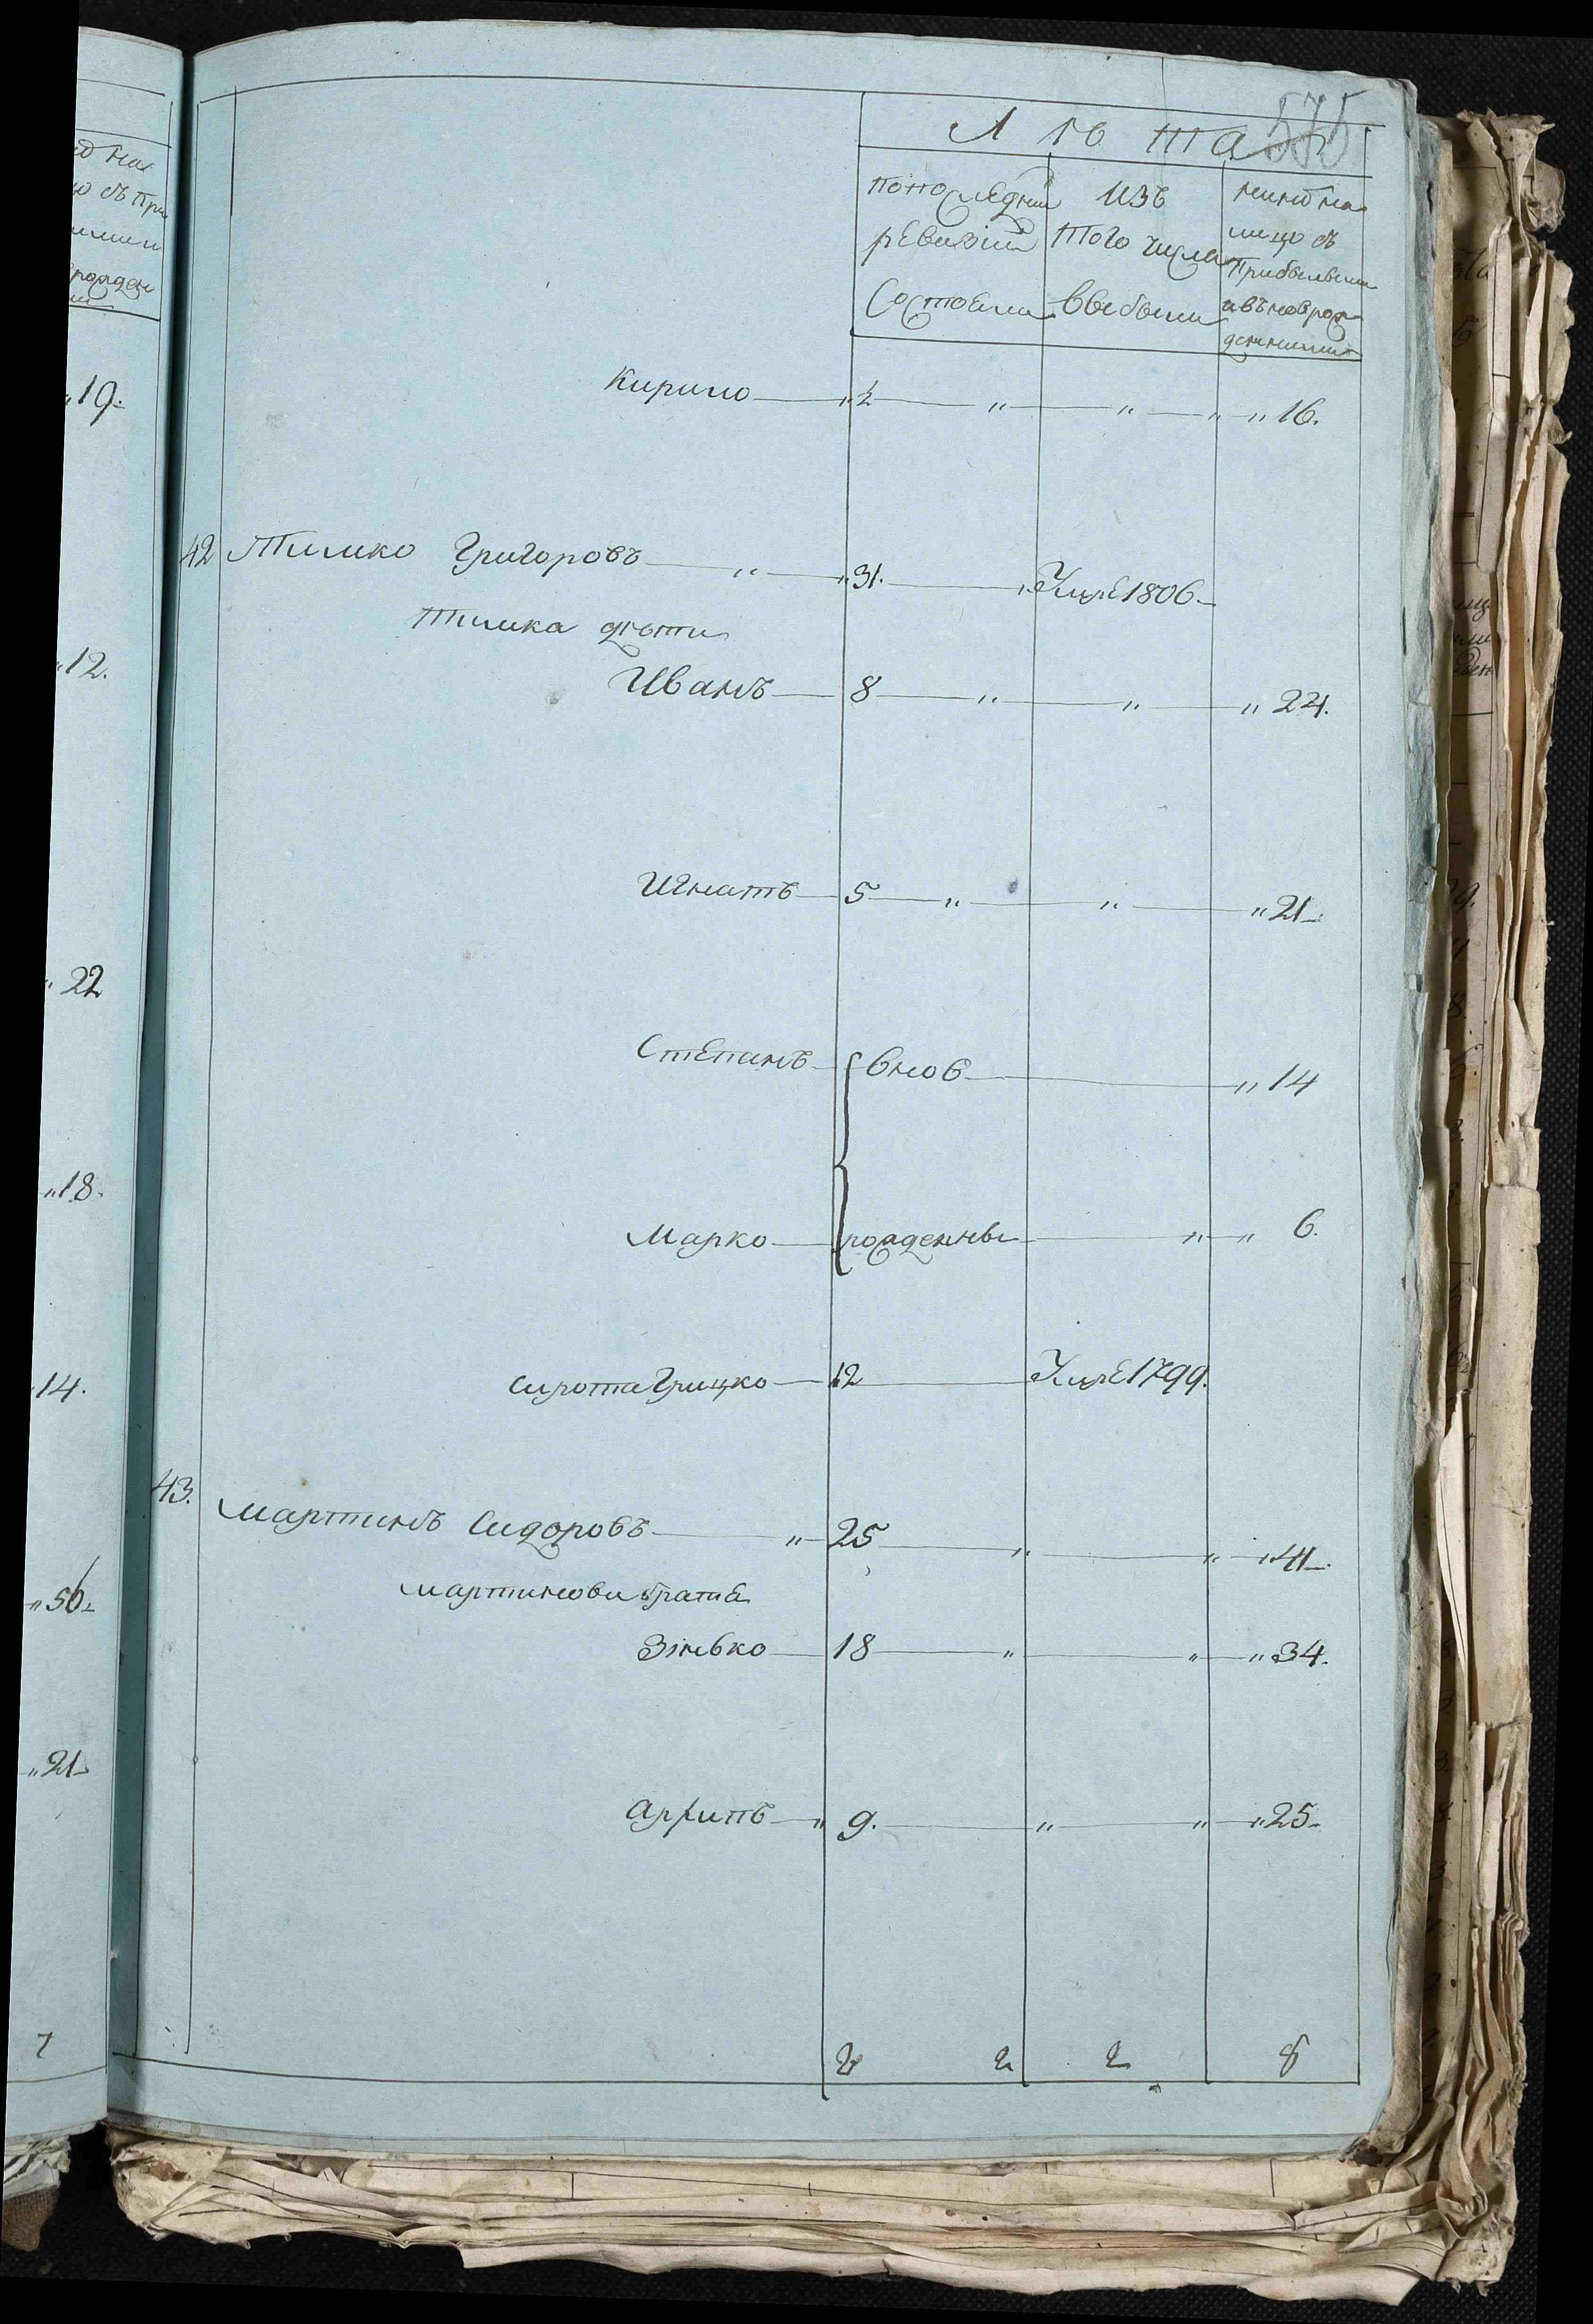 575
Лѣта
попоследней
ревизіи
Состояли
изъ
того числа
выбыли
ныне на
лицо съ
прибылыми
и въноврож
денными
Кирило 2 16.
42 Тимко Григоровъ 31. Умре 1806
Тимка дѣти
Иванъ 8 24.
Игнатъ 5 21
Степанъ внов 14
Марко рожденны 6.
сирота Грицко 12 Умре 1799.
43. Мартинъ Сидоровъ 25 41
мартинови братя
Зінько 18 34.
Архипъ 9. 25
2 2 8
19.
12.
22
18.
14.
56
21
7